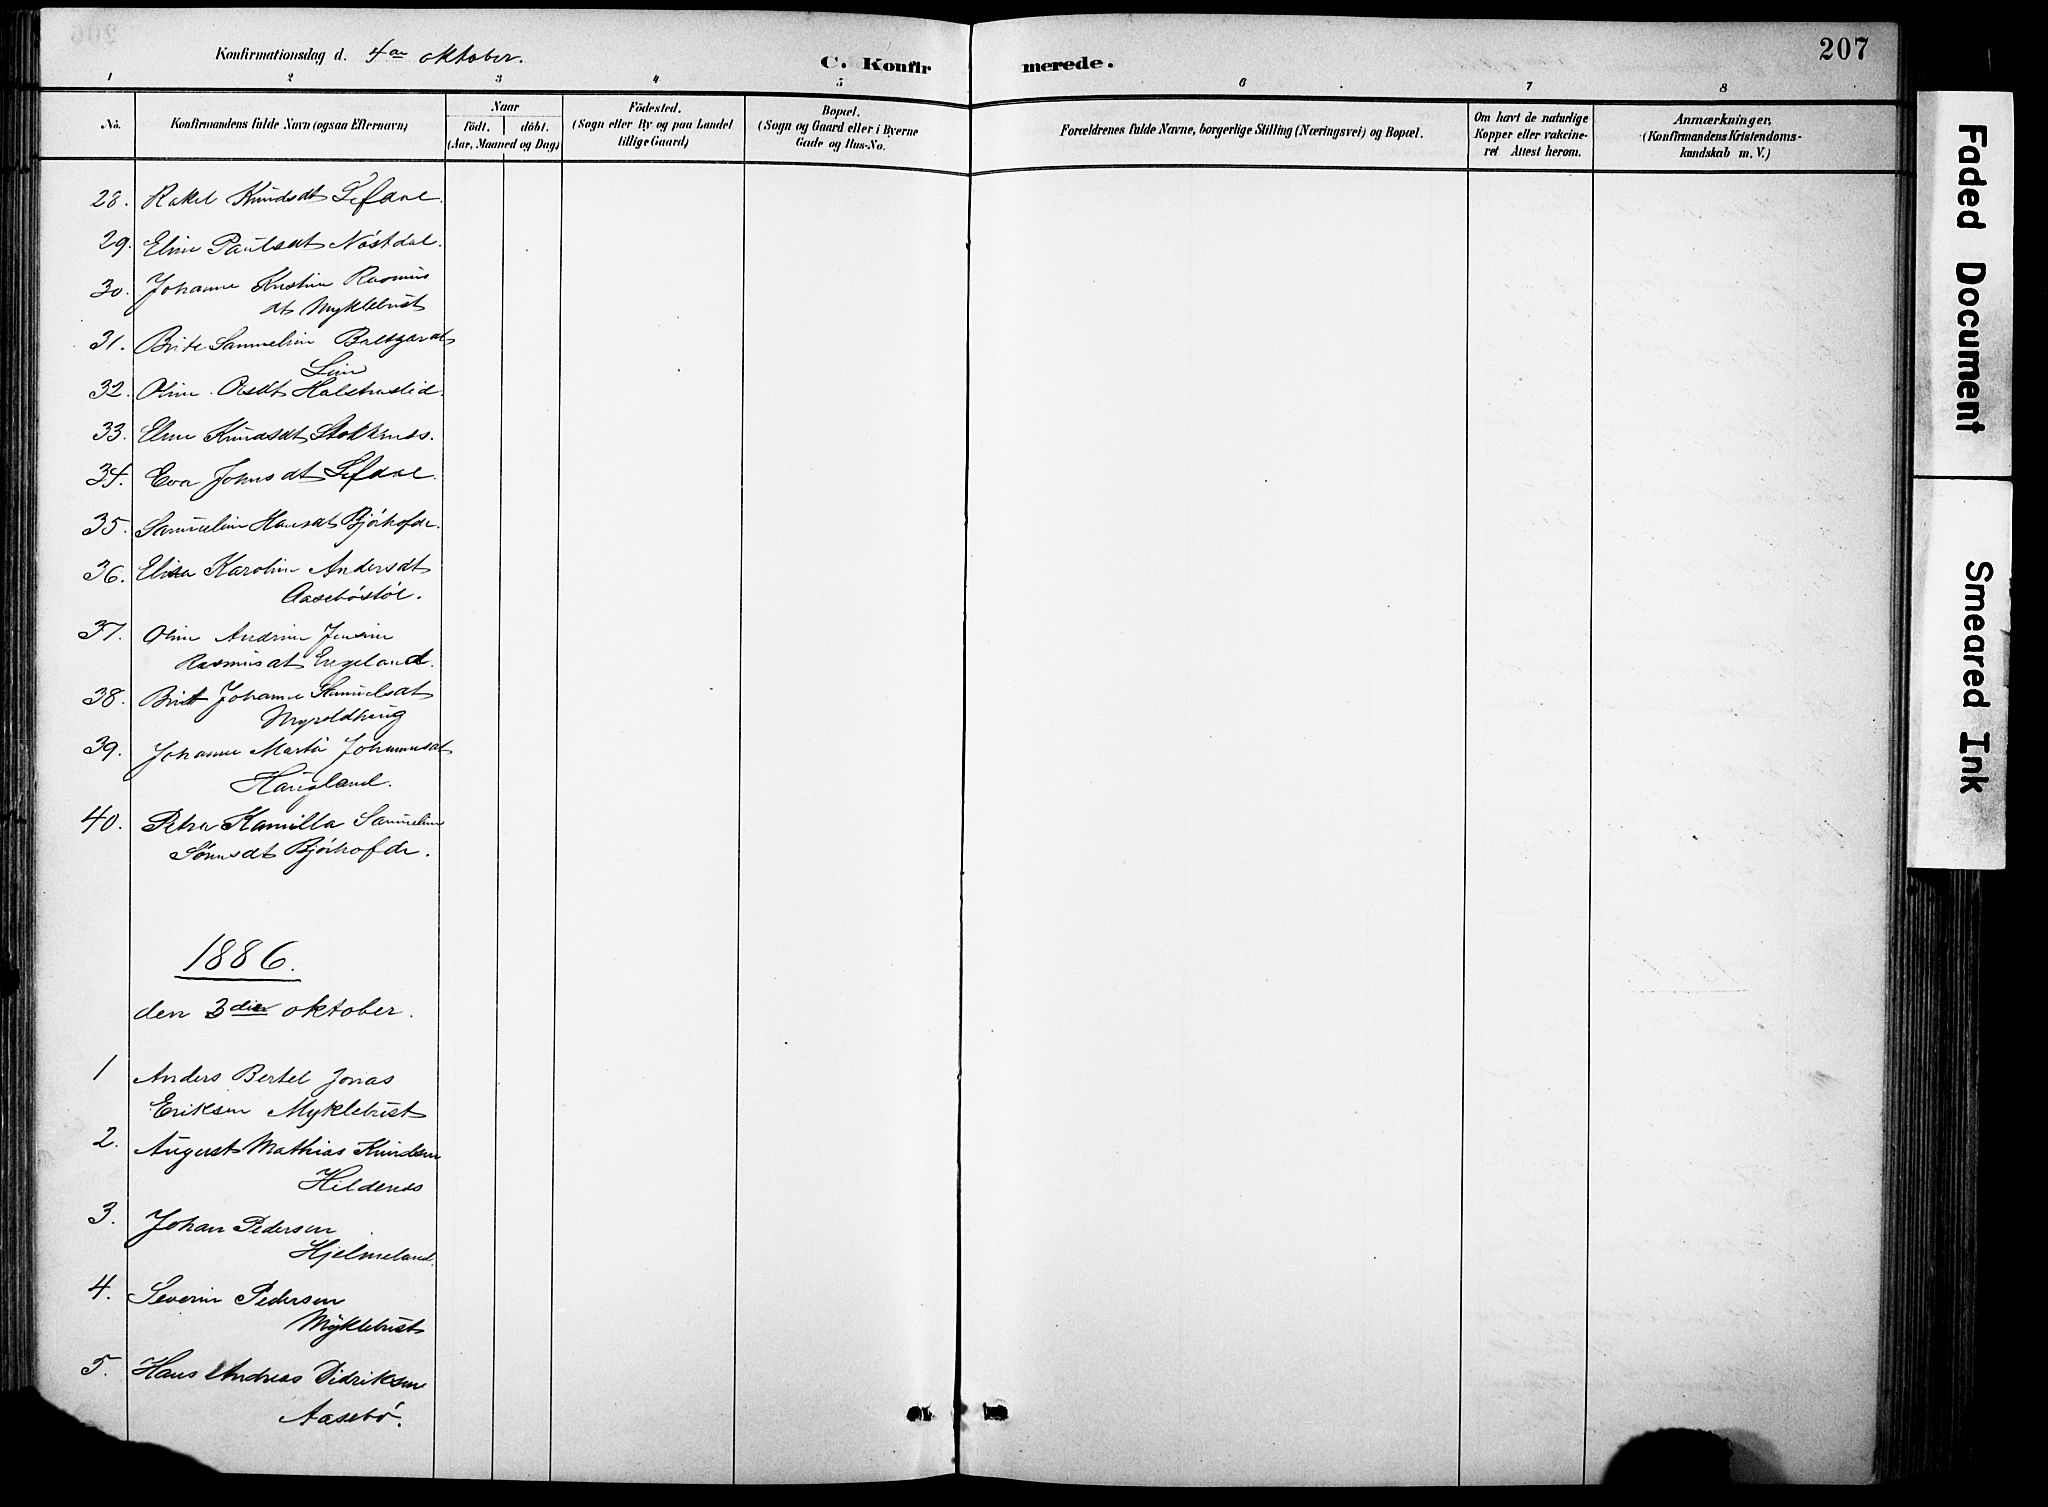 Konfirmationsdag d. 4de oktober.
C. Konfirmerede.
207
1 2 3 4 5 6 7 8
No.
Konfirmandens fulde Navn (ogsaa Efternavn)
Naar
født. døbt.
(Aar, Maaned og Dag)
Födested.
(Sogn eller By og paa Landet
tillige Gaard)
Bopæl.
(Sogn og Gaard eller i Byerne
Gade og Hus-No.
Forældrenes fulde Navne, borgerlige Stilling (Næringsvei) og Bopæl.
Om havt de naturlige
Kopper eller vakcine-
ret Attest herom.
Anmærkninger,
(Konfirmandens Kristendoms-
kundskab m. V.)
28. Rakel Knudsdt Lefdal.
29. Eline Paulsdt Nøstdal.
30. Johanne Kristine Rasmus
dt Myklebust
31. Brite Samueline
32. Oline Halstenslid.
33. Eline Knudsdt Stokknes.
34. Eva Johnsdt Lefdal.
35. Samueline Hansdt Bjørhofde.
36. Elisa Karoline Andersdt
Aasebøstøl.
37. Oline Andrine Jensine
Rasmusdt Engeland.
38. Brit Johanne Samuelsdt
Myroldhaug
39. Johanne Marta Johannesdt
Haugland.
40. Petra Kamilla Samueline
Sørensdt Bjørhofde.
1886.
den 3die oktober.
1 Anders Bertel Jonas
Eriksen Myklebust
2. August Mathias Knudsen
Hildenes
3. Johan Pedersen
Hjelmeland.
4. Severin Pedersen
Myklebust
5. Hans Andreas Didriksen
Aasebø.
Faded Document
Smeared Ink